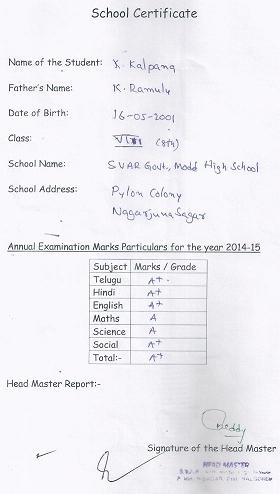 School Certificate
Name of the Student: K. Kalpana
Father's Name: K. Ramulu
Date of Birth: 16-05-2001
Class: VIII (8th)
School Name: SVAR Govt., Model High School
School Address: Pylon Colony
Nagarjuna Sagar
Annual Examination Marks Particulars for the year 2014-15
Subject Marks / Grade
Telugu A+
Hindi A+
English A+
Maths A
Science A
Social A+
Total:- A+
Head Master Report:-
Reddy
Signature of the Head Master
HEAD MASTER